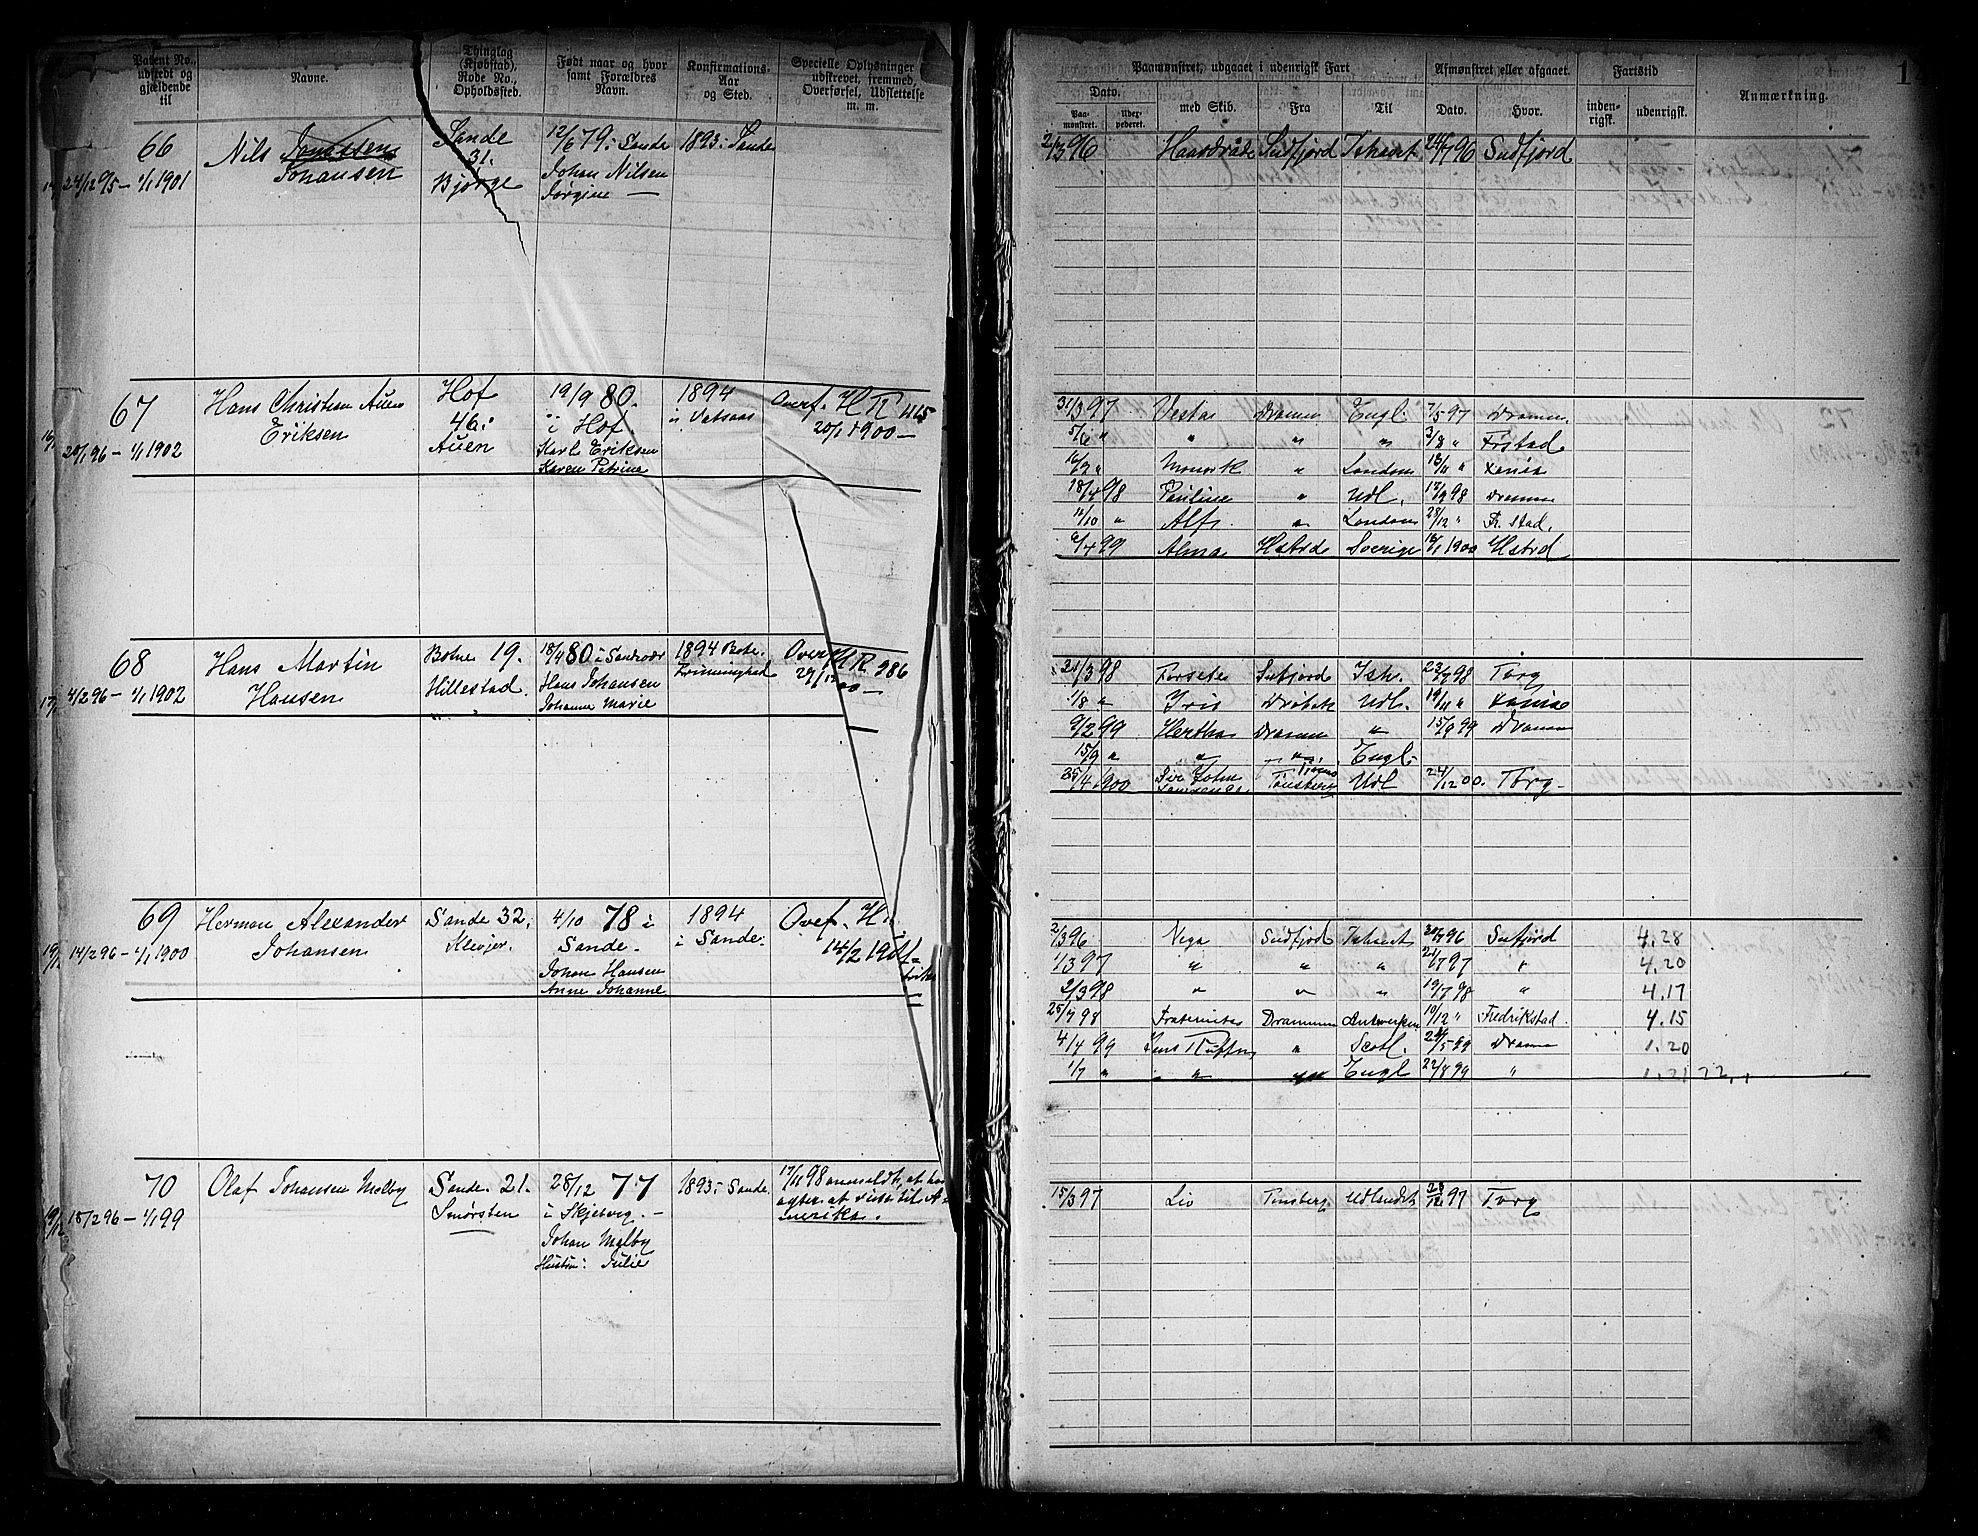 Patent No., udstedt og gjældende til
Navne.
Thinglag (Kjøbstad), Rode No., Opholdssted.
Født naar og hvor samt Forældres Navn.
Konfirmations-Aar og Sted.
Specielle Oplysninger udskrevet, fremmed, Overførsel, Udslettelse m. m.
66
24/12 95 – 1/1 1901
Nils
Johansen
Sande
31.
Bjørge
12/6 79 i Sande
Johan Nilsen
Jørgine —
1893 i Sande
67
20/1 96 – 1/1 1902
Hans Christian Auen
Eriksen
Hof
46
Auen
19/9 80.
i Hof
Karl Eriksen
Karen Petrine
1894
i Vatsaas
Overf. H R 415
20/1 1900 —
68
4/2 96 – 1/1 1902
Hans Martin
Hansen
Botne 19.
Hillestad.
18/4 80 i
Hans Johansen
Johanne Marie
1894 Botne
Overf. H R 386
29/12 00 —
69
14/2 96 – 1/1 1900
Herman Alexander
Johansen
Sande 32.
Klevjer.
4/10 78 i
Sande.
Johan Hansen
Anne Johanne
1894
i Sande.
Ovef. H.
14/2 1901
70
15/2 96 – 1/1 99
Olaf Johansen Melby
Sande. 21.
Smørsten
28/12 77
i Skjeberg. –
Johan Melby
Hustru: Julie
1893 i Sande.
17/11 98 anmeldt, at han
agter at reise til A-
merika.
Paamønstret, udgaaet i udenrigsk Fart
Afmønstret eller afgaaet.
Fartstid
Anmærkning.
Dato.
Paa-mønstret.
Udex-pederet.
med Skib.
Fra
Til
Dato.
Hvor.
inden-rigsk.
udenrigsk.
2/3 96 Haardraade Sndfjord Ishavet 24/7 96 Sndfjord
31/3 97 Vesta Dramm Engl. 7/5 97 Dramm.
5/6 " " " " 3/8 " Frstad
16/9 " Monark " London 13/11 " Xania
18/4 98 Pauline " Udl. 17/9 98 Dramm
11/10 " Alf " London 28/12 " Fr. stad.
6/4 99 Alma Hstrd Sverige 1900 Hstrd
3/98 Forsete Snfjord Ish. 23/7 98 Torg
1/8 " Iris Drøbak Udl. 19/11 " Xania
9/2 99 Hertha Dramm " 15/9 99 Dramm
15/9 " " " Engl.
25/4 1900 Tønsberg Udl 24/12 00. Torg –
2/3 96 Vega Sndfjord Ishavet 96 Snfjord 4.28
1/3 97 " " " 21/7 97 " 4.20
2/3 98 " " " 19/7 98 " 4.17
25/7 98 Fraternitas Drammen Antwerpen 10/12 " Fredrikstad. 4.15
4/4 99 Jens " Scotl. 24/5 99 Dramm 1.20
1/7 " " " Engl 22/8 99 " 1.21 22.
15/3 97 Liv Tønsberg Udlandet 97 Torg